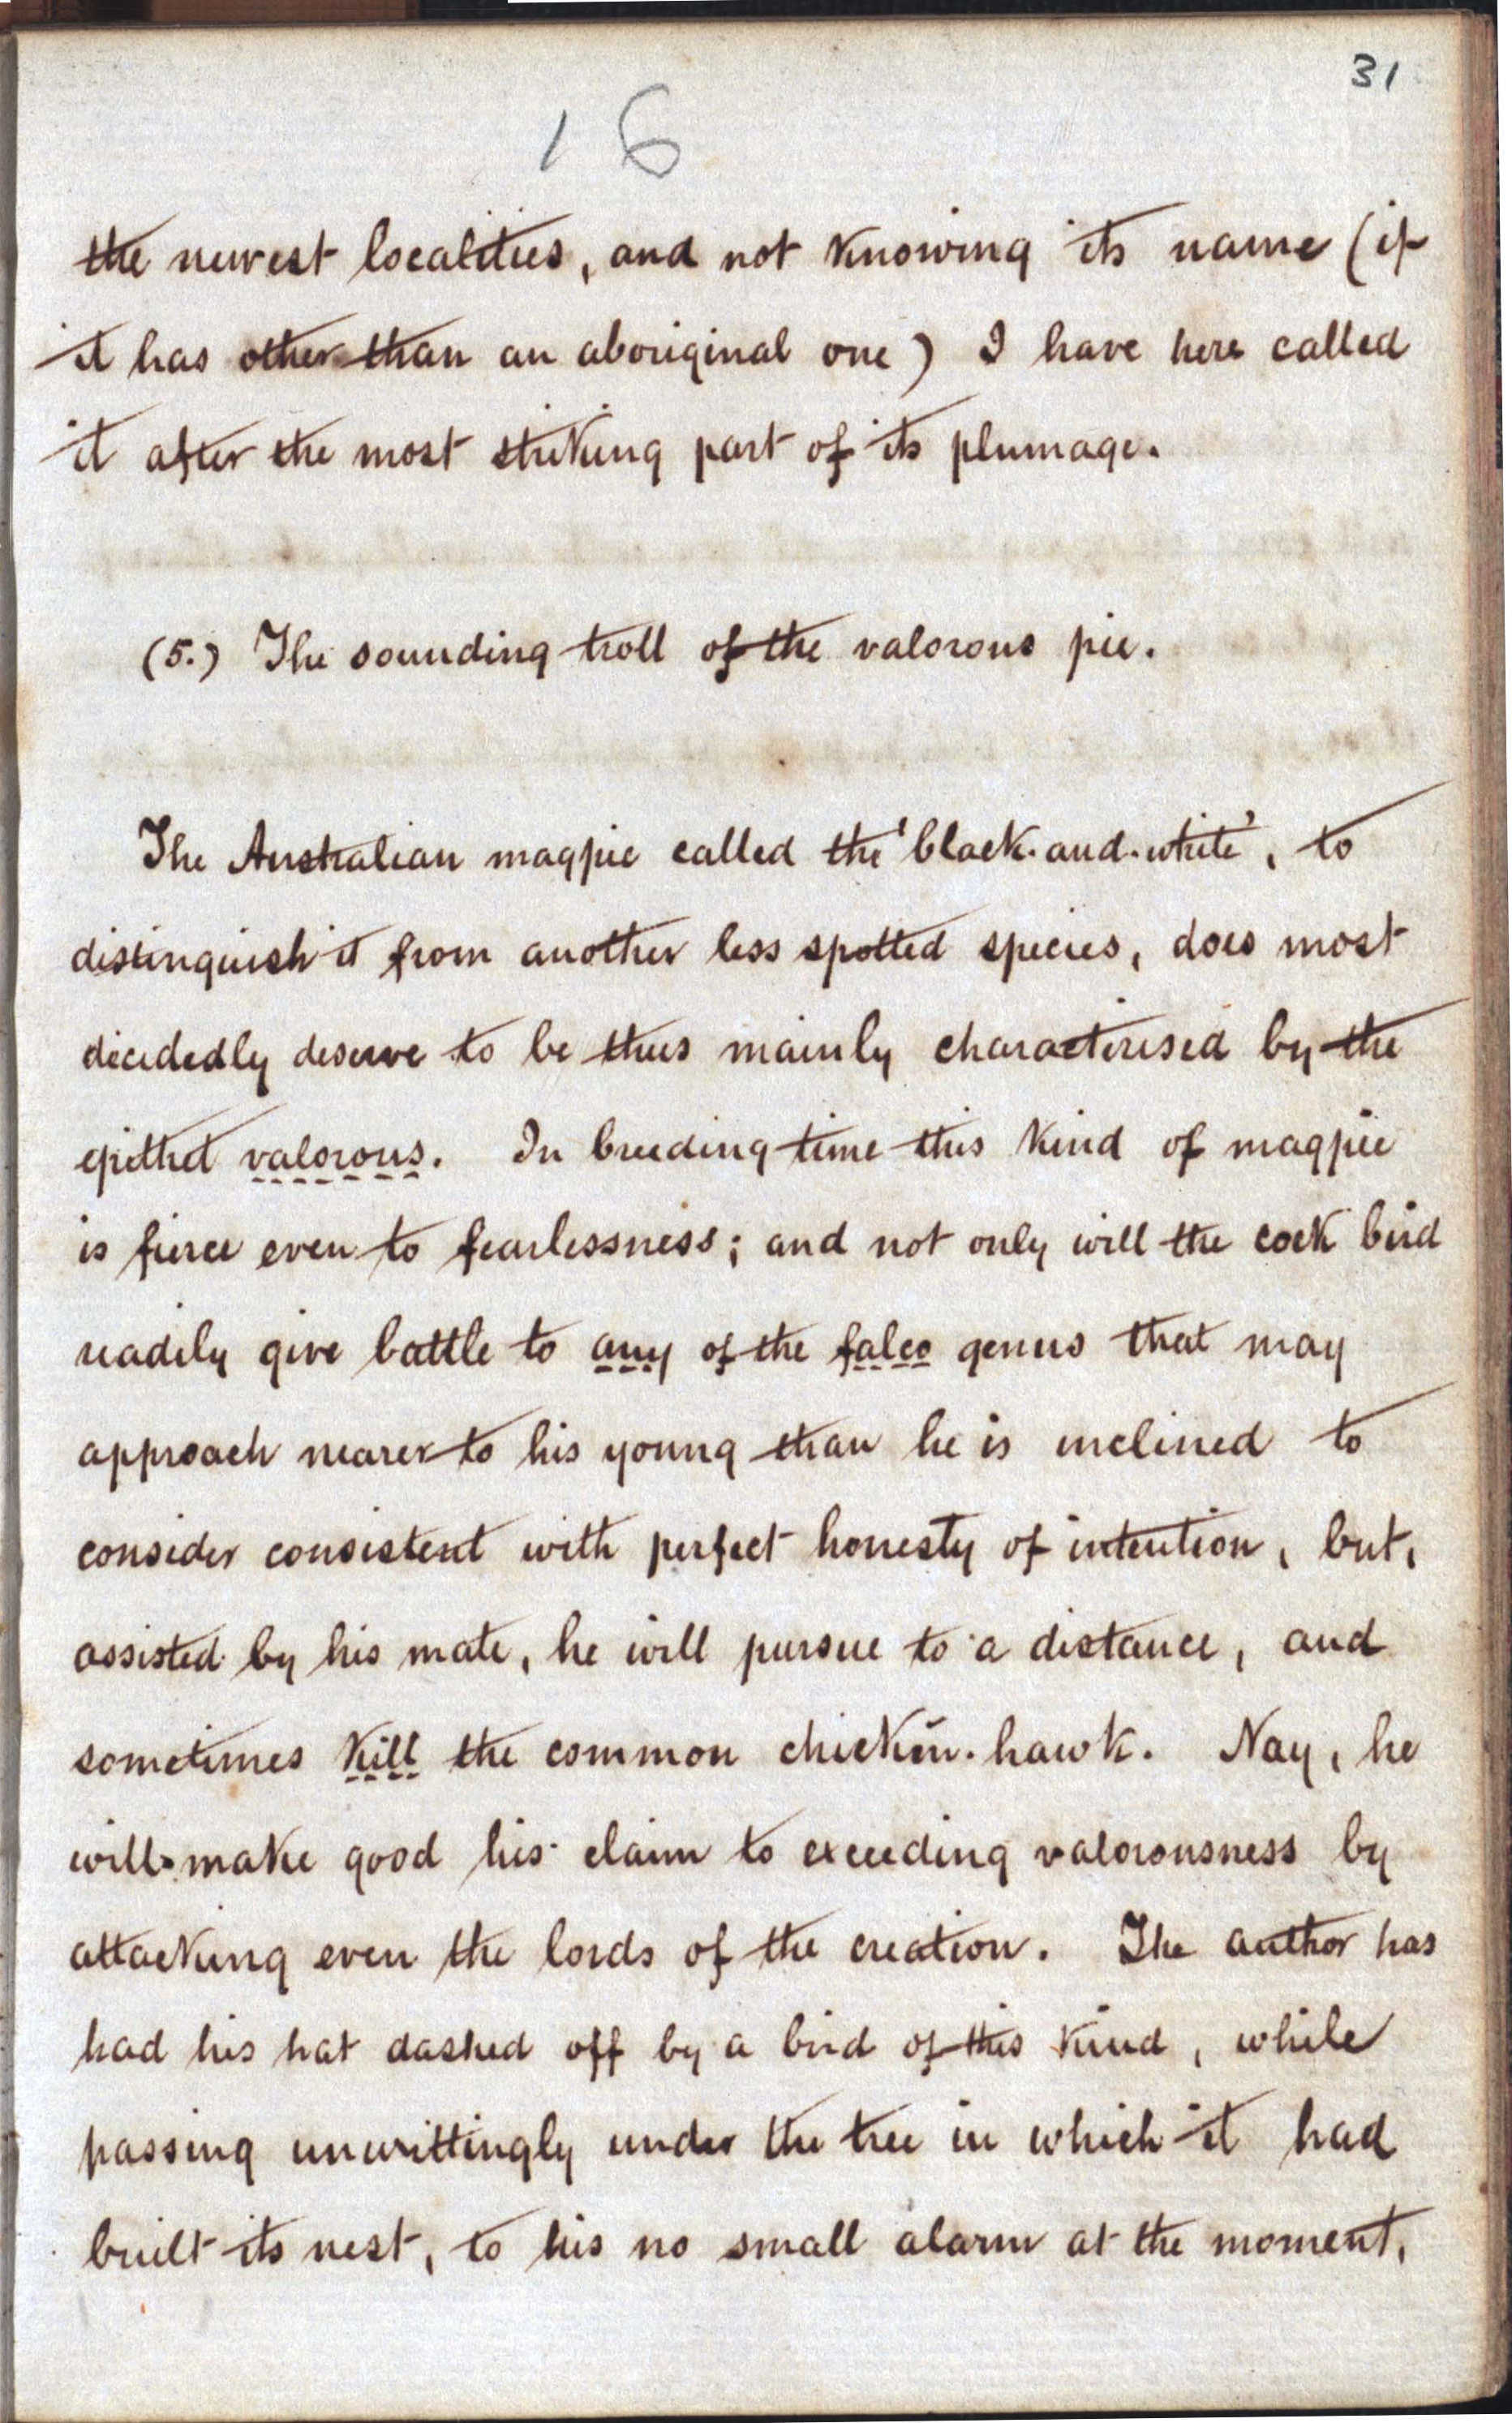 31
16
the newest localities, and not knowing its name (if
it has other than an aboriginal one) I have here called
it after the most striking part of its plumage.
(5.) The sounding troll of the valorous pie.
The Australian magpie called the 'black-and-white', to
distinguish it from another less spotted species, does most
decidedly deserve to be thus mainly characterised by the
epithet valorous. In breeding time this kind of magpie
is fierce even to fearlessness; and not only will the cock bird
readily give battle to any of the falco genus that may
approach nearer to his young than he is inclined to
consider consistent with perfect honesty of intention, but,
assisted by his mate, he will pursue to a distance, and
sometimes kill the common chicken-hawk. Nay, he
will make good his claim to exceeding valorousness by
attacking even the lords of the creation. The author has
had his hat dashed off by a bird of this kind, while
passing unwittingly under the tree in which it had
built its nest, to his no small alarm at the moment,